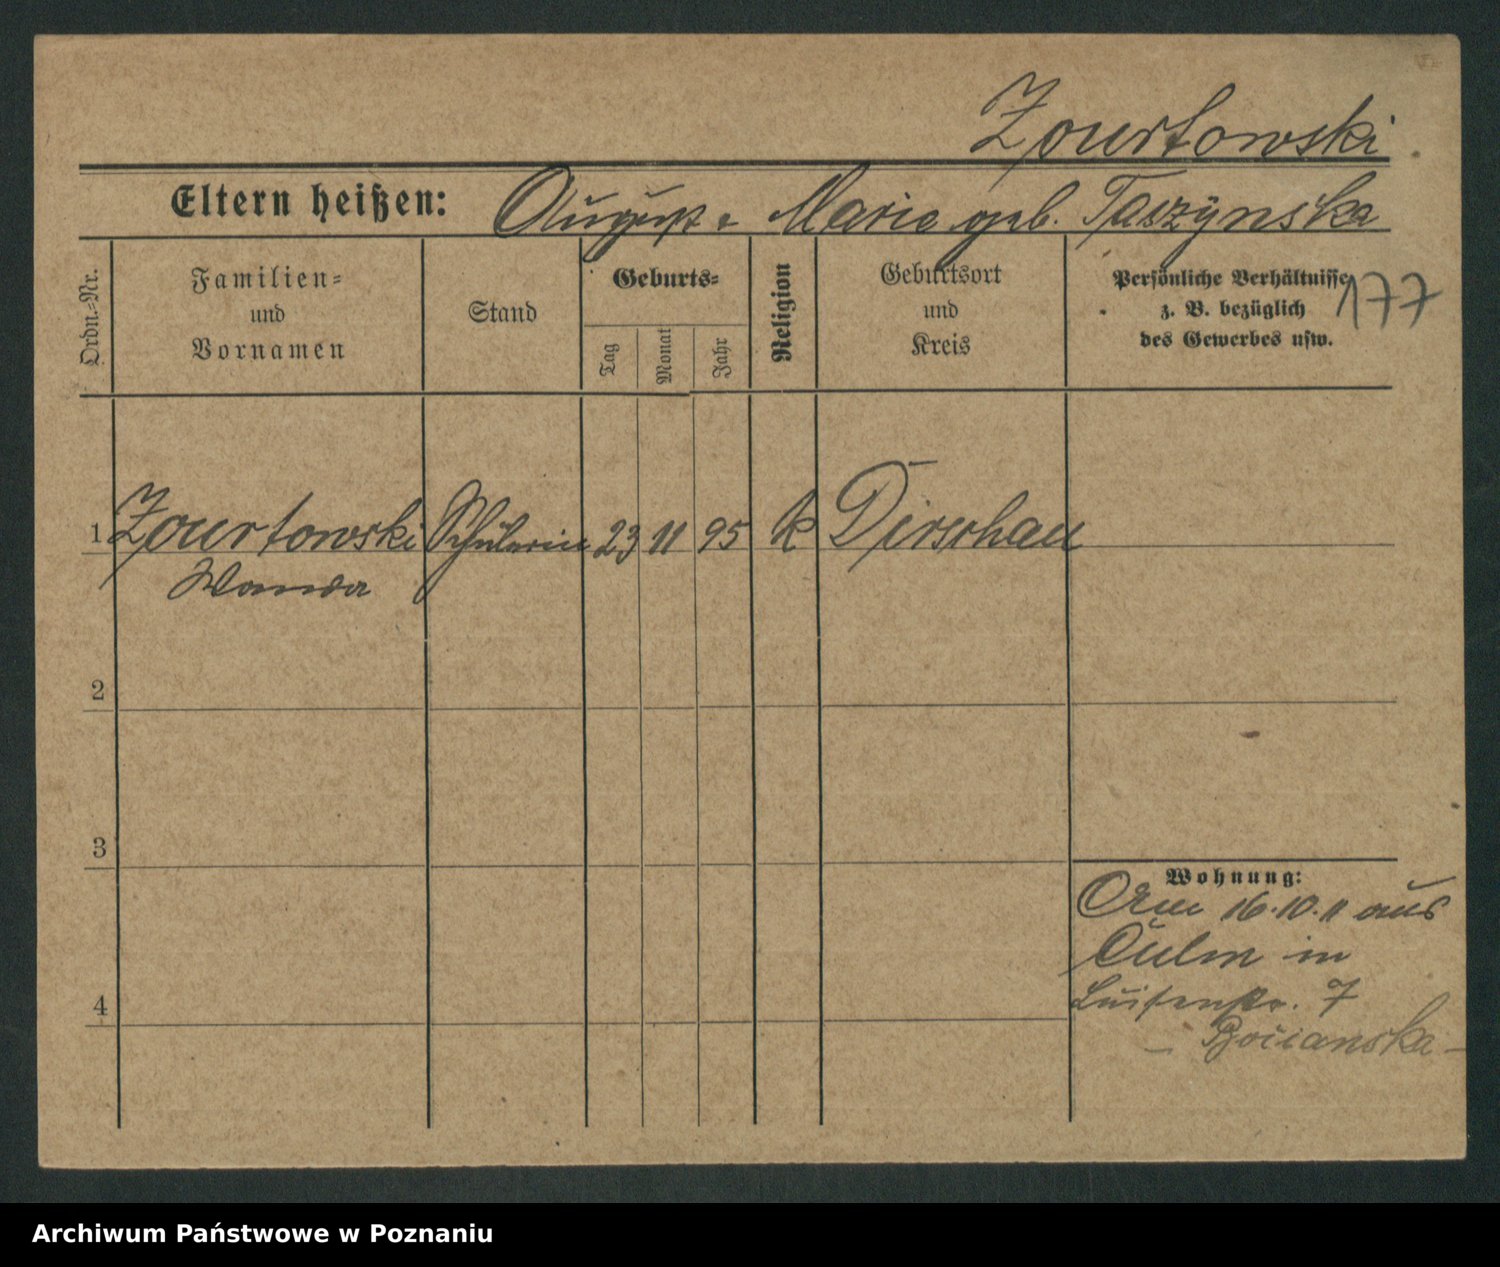 Zourtowski
Eltern heißen: August u Marie geb. Taszynska
Ordn.-Nr.
Familien-
und
Vornamen
Stand
Geburts-
Tag
Monat
Jahr
Religion
Geburtsort
und
Kreis
Persönliche Verhältnisse
z. B. bezüglich
des Gewerbes usw.
177
1 Zourtowski Schülerin 23 11 95 k Dirschau
Wanda
2
3
4
Wohnung:
Am 16.10.11 aus
Culm in
Luisenstr. 7
– Bocianska –
Archiwum Państwowe w Poznaniu